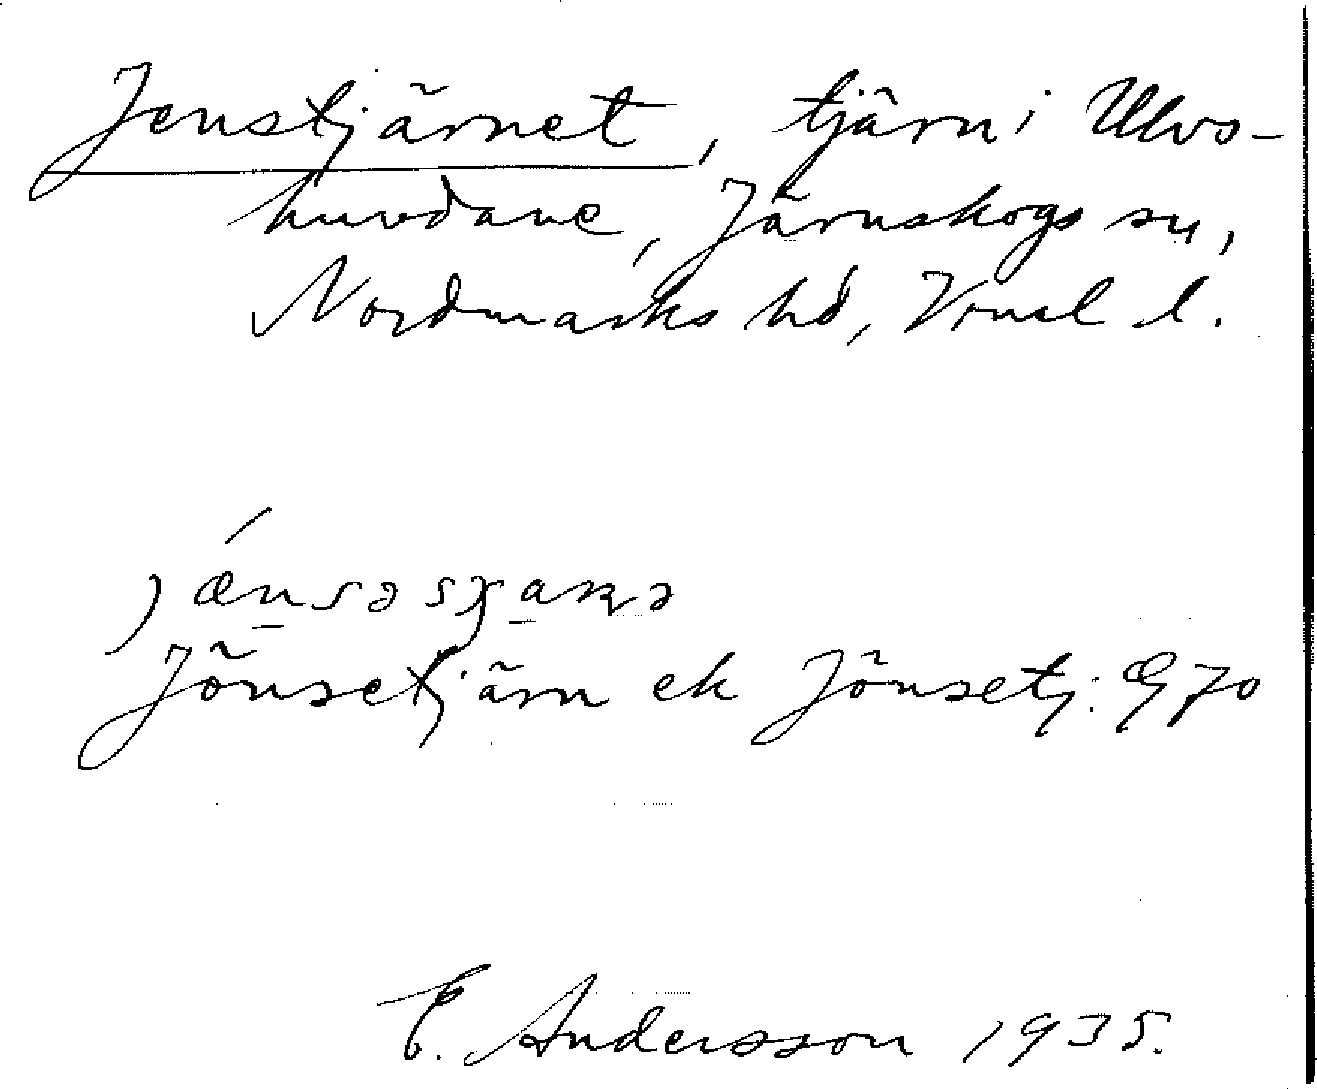 Jenstjärnet, tjärn i Ulvs-
huvdane, Järnskogs sn,
Nordmarks hd, Vrml l.
Jönsetjärn ek Jönsetj: G 70
E. Andersson 1935.